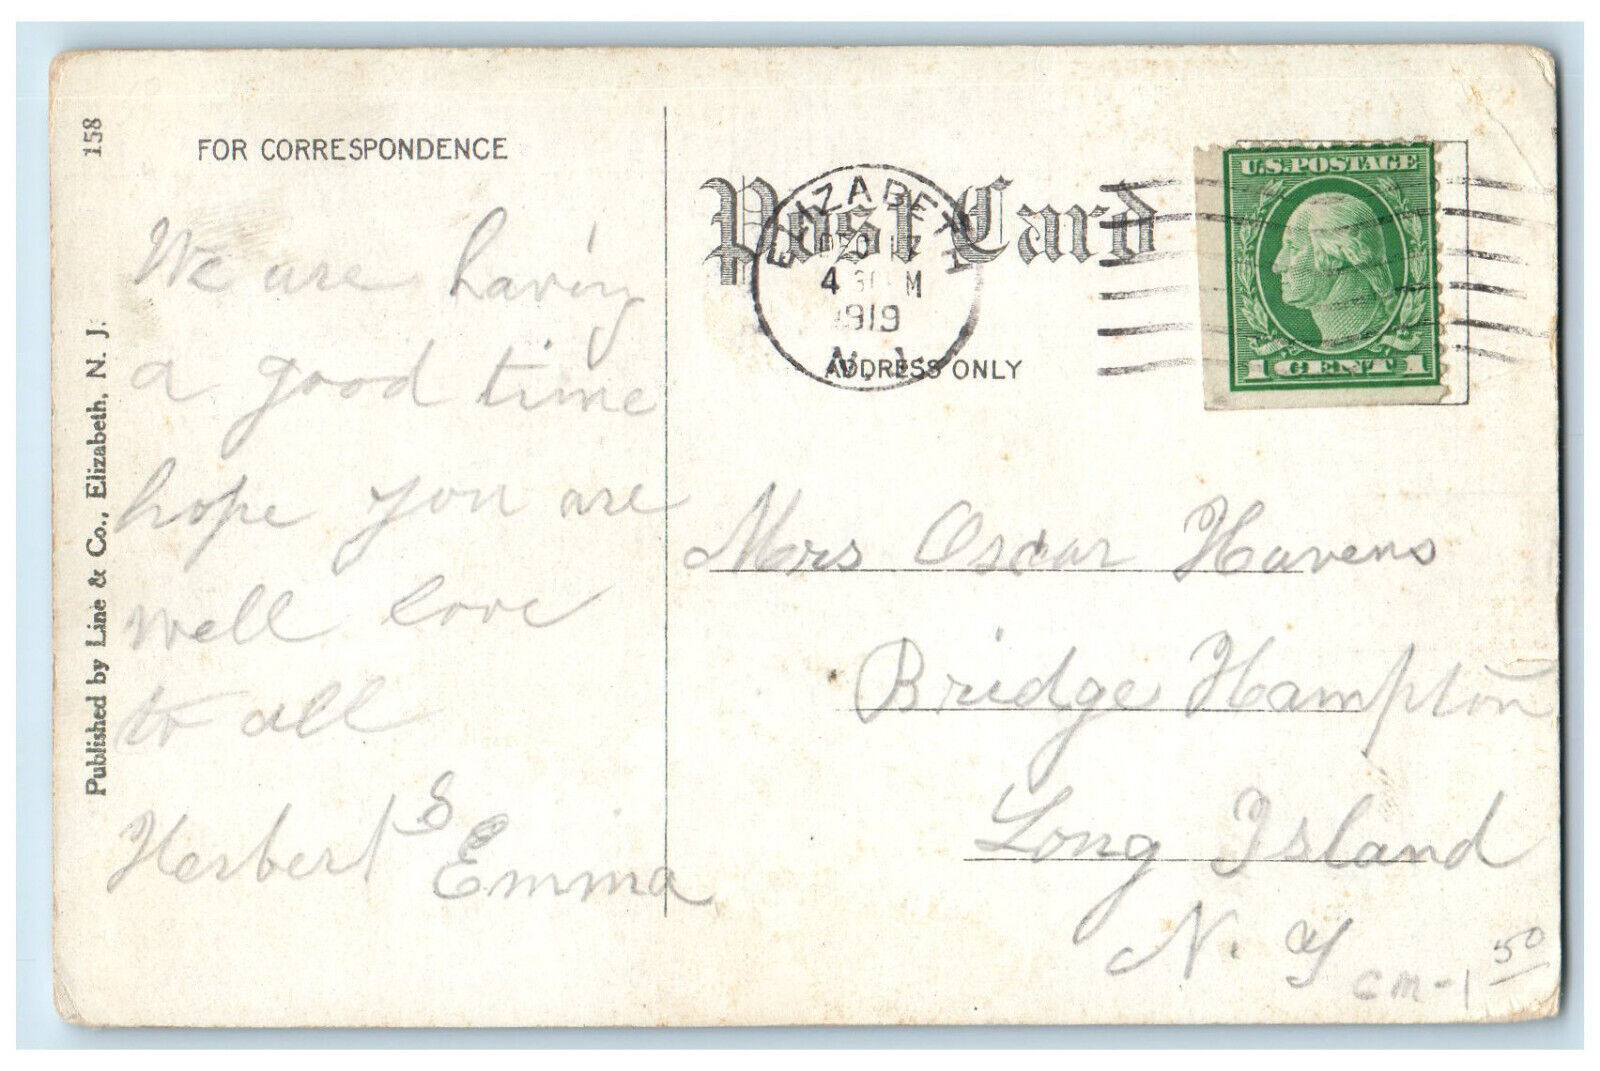 158
Published by Line & Co., Elizabeth, N. J.
FOR CORRESPONDENCE
We are having
a good time
hope you are
well love
to all
Herbert & Emma
Post Card
ELIZABETH
4 30 M
1919
N. J.
ADDRESS ONLY
U.S. POSTAGE
1 CENT 1
Mrs Oscar Havens
Bridge Hampton
Long Island
N. Y
cm-1 50